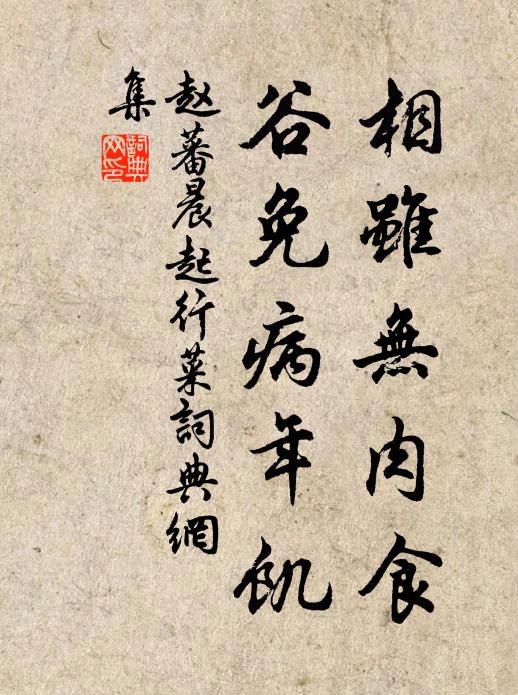 相雖無肉食
谷免病年飢
赵蕃晨起行菜詞典網
集
詞典
网印